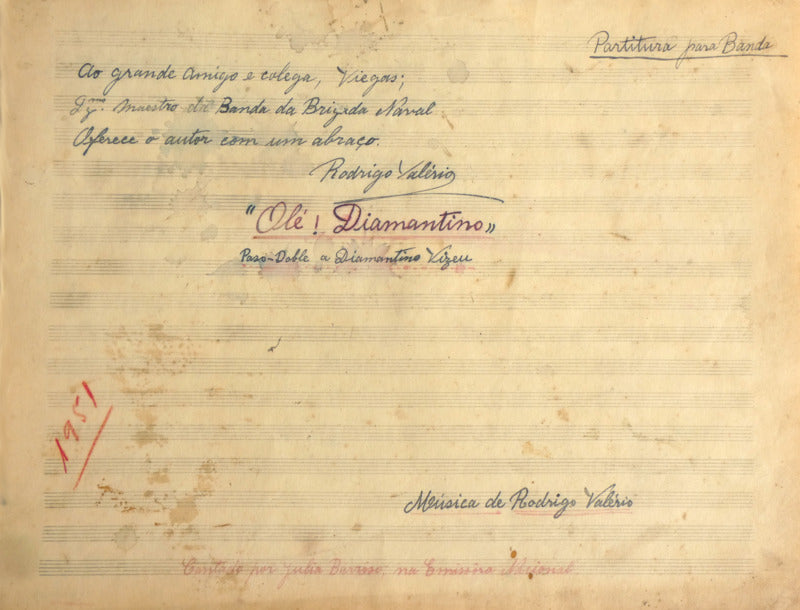 Partitura para Banda
Ao grande amigo e colega, Viegas;
Dgmo. Maestro da Banda da Brigada Naval
Oferece o autor com um abraço.
Rodrigo Valério
"Olé! Diamantino"
Paso-Doble a Diamantino Vizeu
1951
Música de Rodrigo Valério
Cantado por Julia Barroso, na Emissora Nacional.